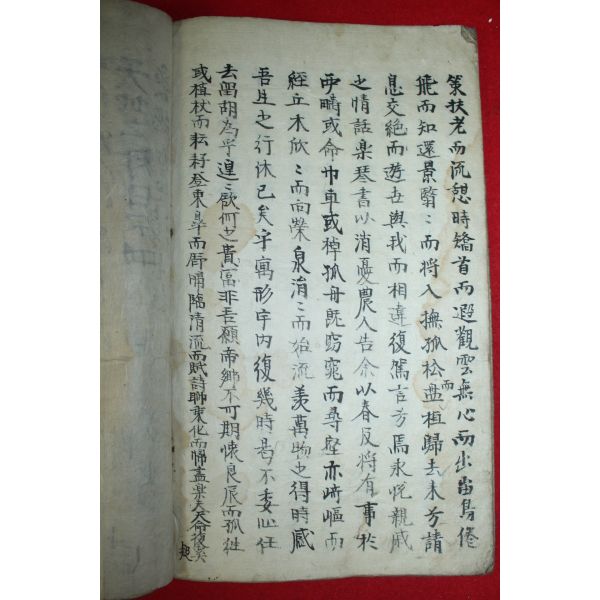 策扶老而流憩時矯首而遐觀雲無心而出岫鳥倦
飛而知還景翳〻而將入撫孤松而盤桓歸去來兮請
息交絶而遊世與我而相違復駕言兮焉永悅親戚
之情話楽琴書以消憂農人告余以春及將有事於
西疇或命巾車或棹孤舟旣窈窕而尋壑亦崎嶇而
經丘木欣〻而向榮泉涓〻而始流羨萬物之得時感
吾生之行休已矣乎寓形宇内復幾時曷不委心任
去留胡為乎遑〻欲何之貴富非吾願帝鄉不可期懷良辰而孤往
或植杖而耘耔登東皐而舒嘯臨清流而賦詩聊乘化而歸盡楽夫天命復奚
疑